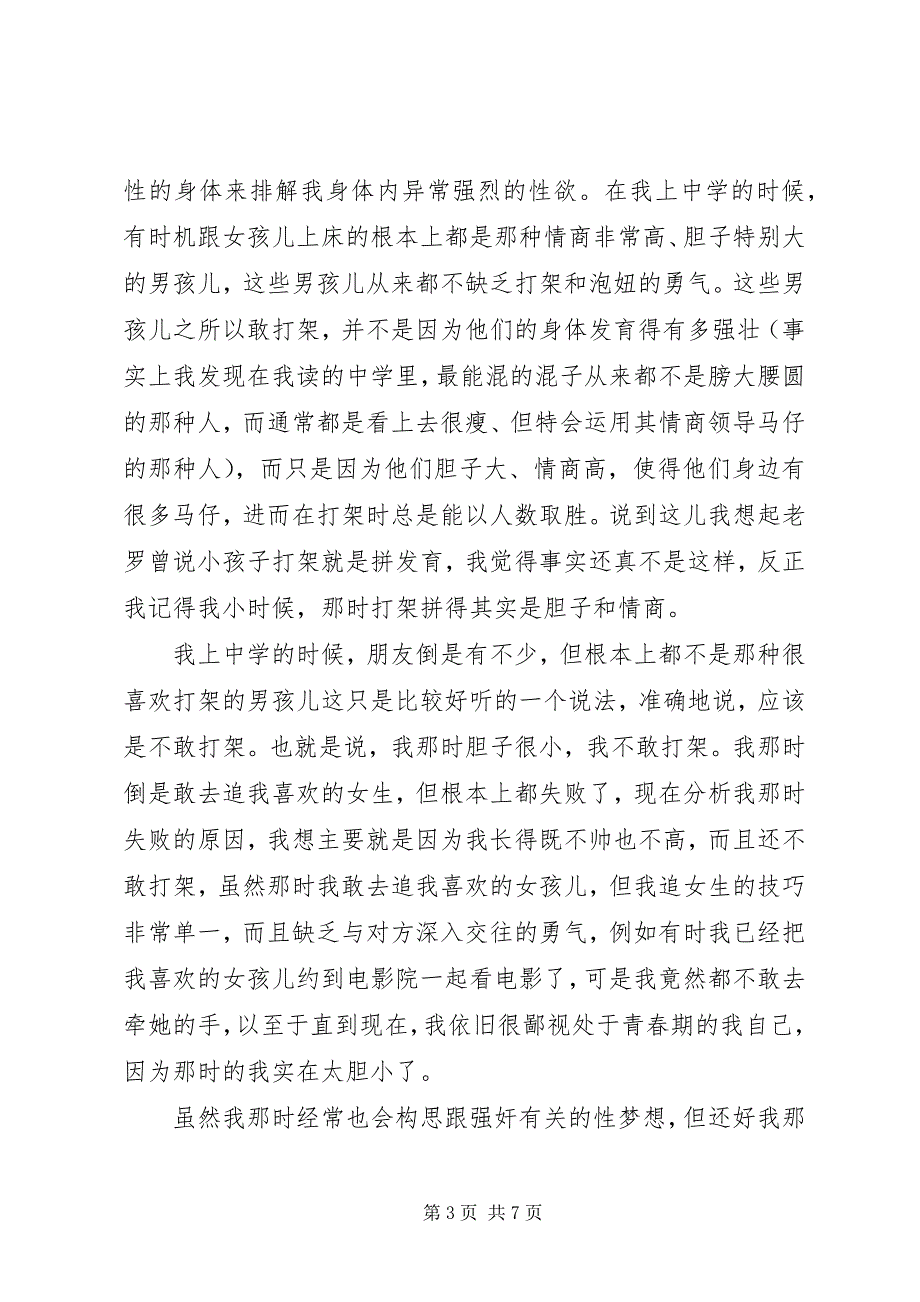 性的身体来排解我身体内异常强烈的性欲。在我上中学的时候，
有时机跟女孩儿上床的根本上都是那种情商非常高、胆子特别大
的男孩儿，这些男孩儿从来都不缺乏打架和泡妞的勇气。这些男
孩儿之所以敢打架，并不是因为他们的身体发育得有多强壮（事
实上我发现在我读的中学里，最能混的混子从来都不是膀大腰圆
的那种人，而通常都是看上去很瘦、但特会运用其情商领导马仔
的那种人），而只是因为他们胆子大、情商高，使得他们身边有
很多马仔，进而在打架时总是能以人数取胜。说到这儿我想起老
罗曾说小孩子打架就是拼发育，我觉得事实还真不是这样，反正
我记得我小时候，那时打架拼得其实是胆子和情商。
我上中学的时候，朋友倒是有不少，但根本上都不是那种很
喜欢打架的男孩儿这只是比较好听的一个说法，准确地说，应该
是不敢打架。也就是说，我那时胆子很小，我不敢打架。我那时
倒是敢去追我喜欢的女生，但根本上都失败了，现在分析我那时
失败的原因，我想主要就是因为我长得既不帅也不高，而且还不
敢打架，虽然那时我敢去追我喜欢的女孩儿，但我追女生的技巧
非常单一，而且缺乏与对方深入交往的勇气，例如有时我已经把
我喜欢的女孩儿约到电影院一起看电影了，可是我竟然都不敢去
牵她的手，以至于直到现在，我依旧很鄙视处于青春期的我自己，
因为那时的我实在太胆小了。
虽然我那时经常也会构思跟强奸有关的性梦想，但还好我那
第 3 页 共 7 页